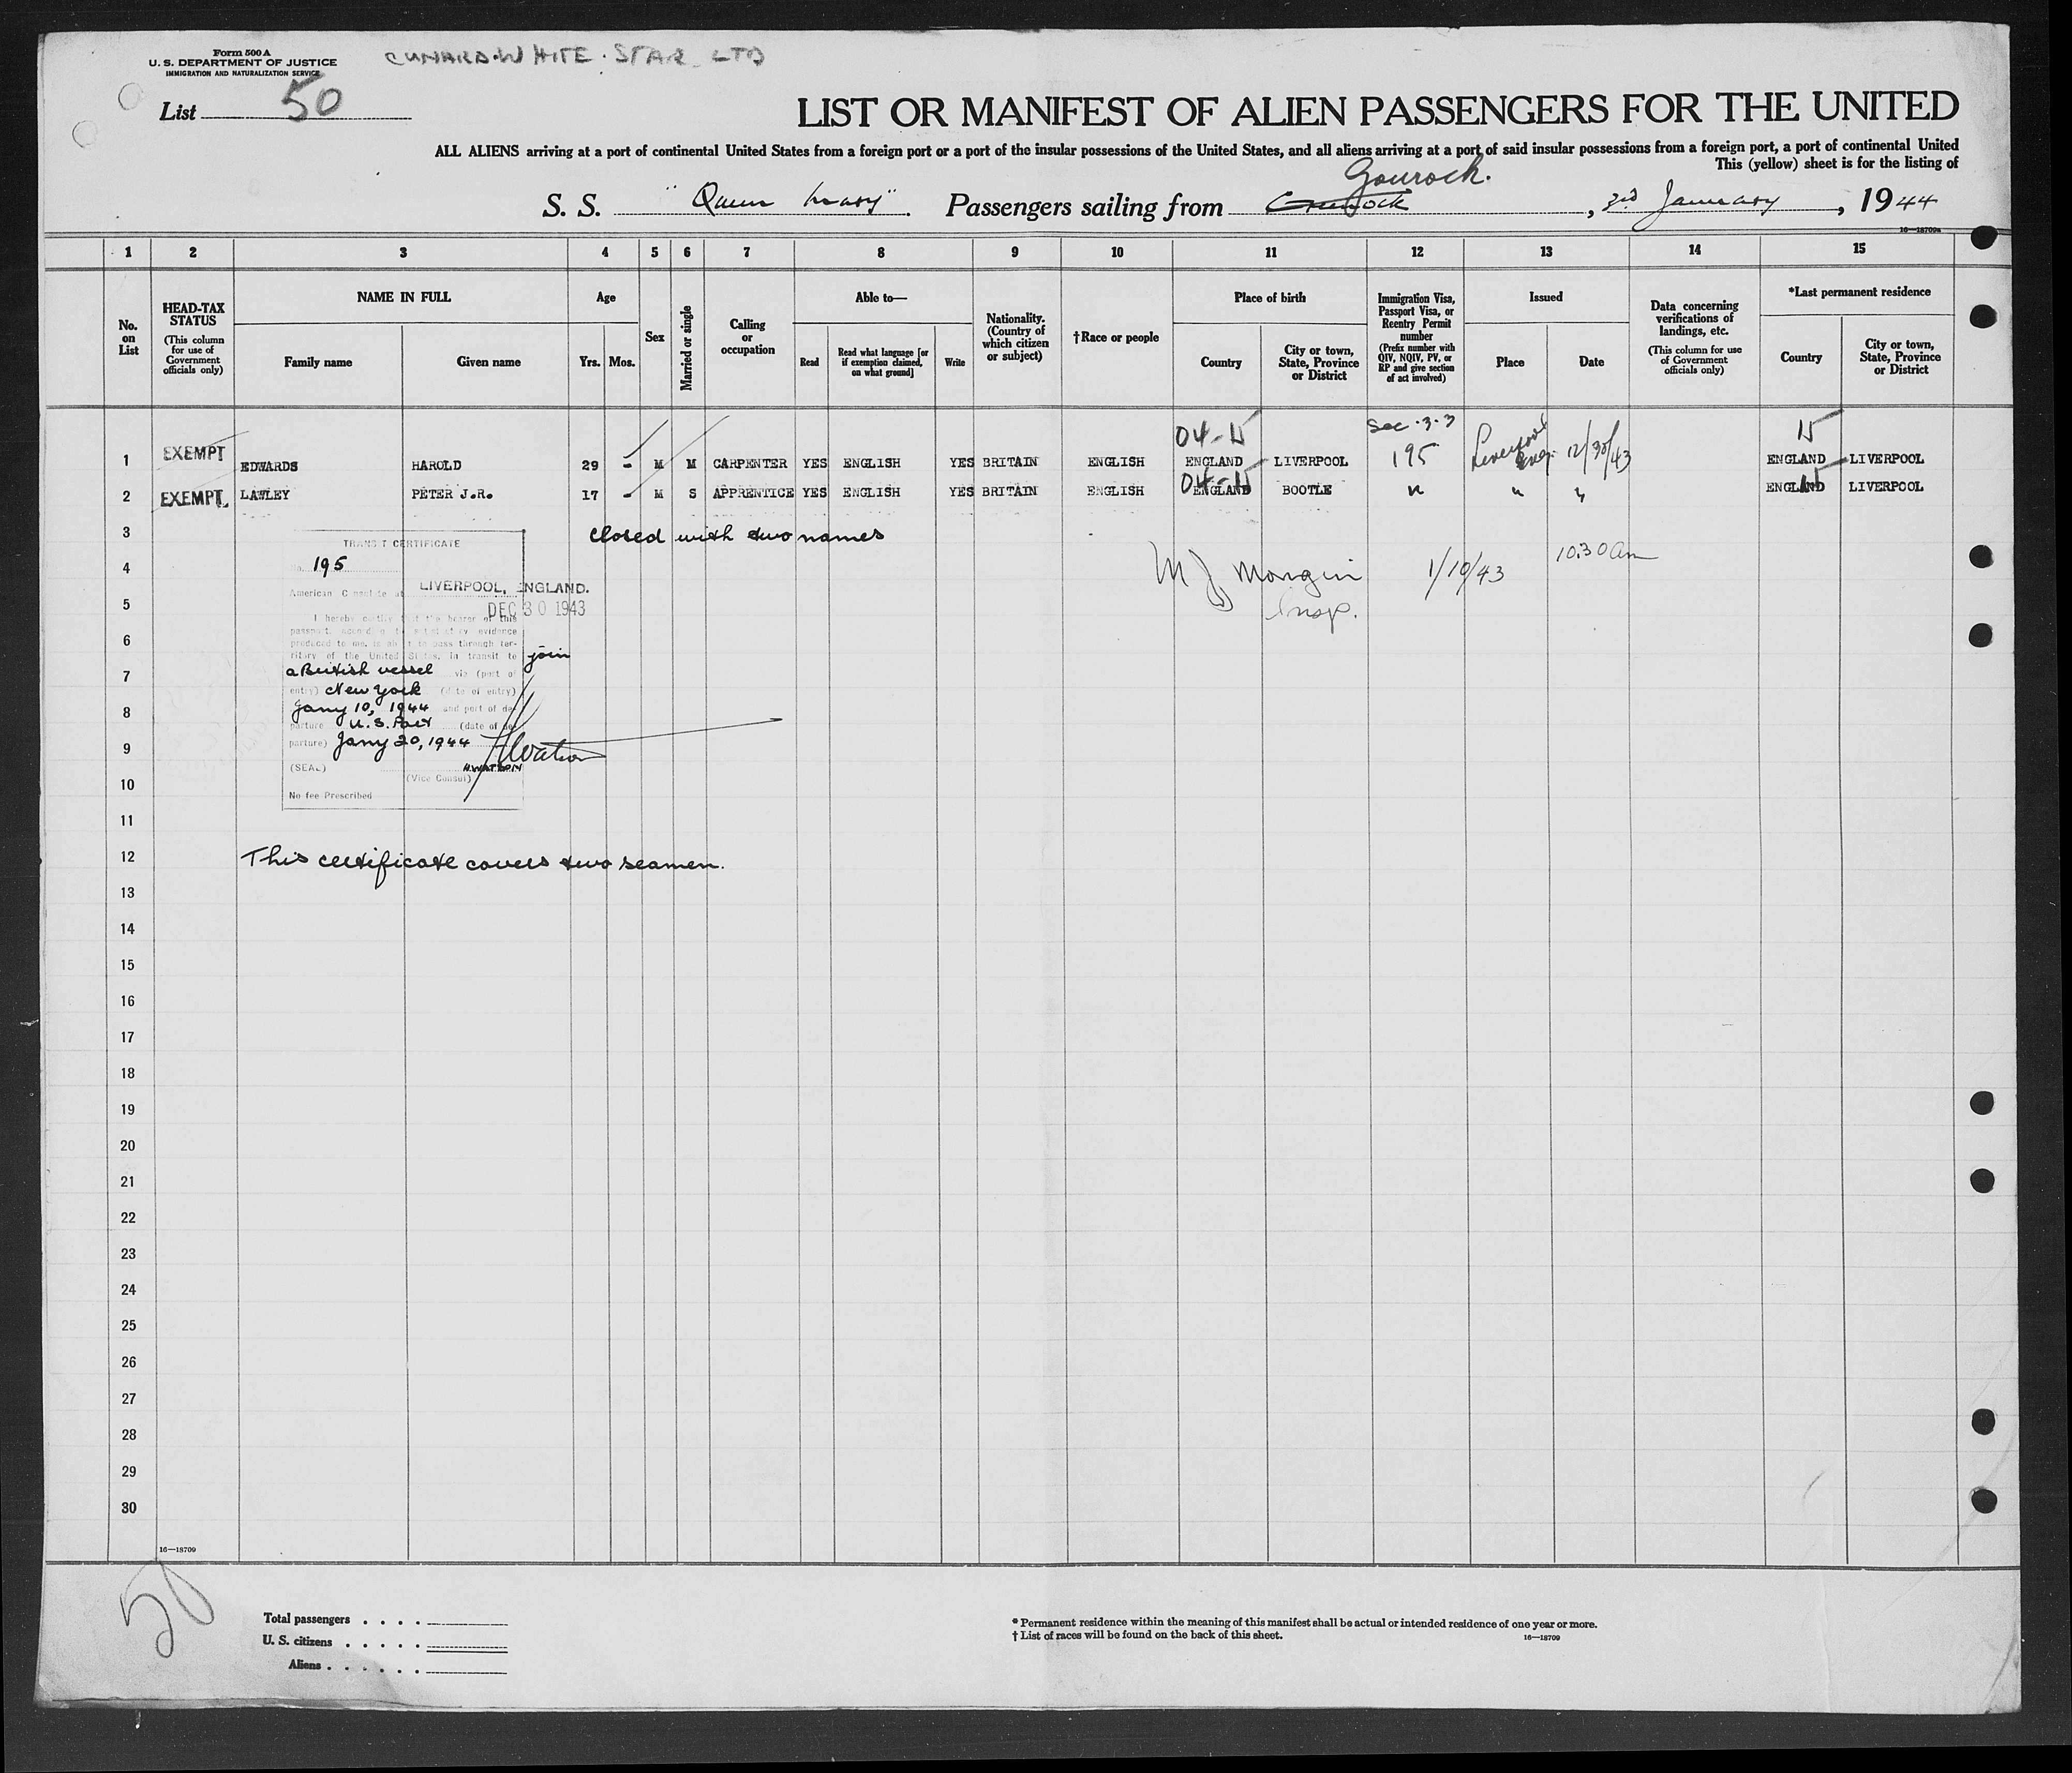 Form 500 A
U. S. DEPARTMENT OF JUSTICE
IMMIGRATION AND NATURALIZATION SERVICE
CUNARD-WHITE. STAR LTD
List 50
LIST OR MANIFEST OF ALIEN PASSENGERS FOR THE UNITED
ALL ALIENS arriving at a port of continental United States from a foreign port or a port of the insular possessions of the United States, and all aliens arriving at a port of said insular possessions from a foreign port, a port of continental United
This (yellow) sheet is for the listing of
Gourock.
S. S. "Queen Mary". Passengers sailing from Greenock, 3rd January, 1944
16—18709a
1 2 3 4 5 6 7 8 9 10 11 12 13 14 15
No. on List
HEAD-TAX STATUS
(This column for use of Government officials only)
NAME IN FULL
Family name
Given name
Age
Yrs.
Mos.
Sex
Married or single
Calling or occupation
Able to—
Read
Read what language [or if exemption claimed, on what ground]
Write
Nationality. (Country of which citizen or subject)
†Race or people
Place of birth
Country
City or town, State, Province or District
Immigration Visa, Passport Visa, or Reentry Permit number
(Prefix number with QIV, NQIV, PV, or RP and give section of act involved)
Issued
Place
Date
Data concerning verifications of landings, etc.
(This column for use of Government officials only)
*Last permanent residence
Country
City or town, State, Province or District
04- Sec. 3.3
1 EXEMPT EDWARDS HAROLD 29 - M M CARPENTER YES ENGLISH YES BRITAIN ENGLISH ENGLAND LIVERPOOL 195 Liverpool Eng. 12/30/43 ENGLAND LIVERPOOL
04-
2 EXEMPT. LAWLEY PETER J.R. 17 - M S APPRENTICE YES ENGLISH YES BRITAIN ENGLISH ENGLAND BOOTLE " " " ENGLAND LIVERPOOL
3 closed with two names
4
5
6
7
8
9
10
11
12
13
14
15
16
17
18
19
20
21
22
23
24
25
26
27
28
29
30
M J Mongin 1/10/43 10.30 am
Insp.
TRANSIT CERTIFICATE
No. 195
American Consulate at LIVERPOOL, ENGLAND.
DEC 30 1943
I hereby certify that the bearer of this
passport, according to satisfactory evidence
produced to me, is about to pass through ter-
ritory of the United States, in transit to join
a British vessel via (port of
entry) New York (date of entry)
Jany 10, 1944 and port of de-
parture U.S. Port (date of de-
parture) Jany 20, 1944
HWatson
(SEAL) H.WATSON
(Vice Consul)
No fee Prescribed
This certificate covers two seamen.
16—18709
50
Total passengers . . . .
U. S. citizens . . . . .
Aliens . . . . . .
* Permanent residence within the meaning of this manifest shall be actual or intended residence of one year or more.
† List of races will be found on the back of this sheet.
16—18709